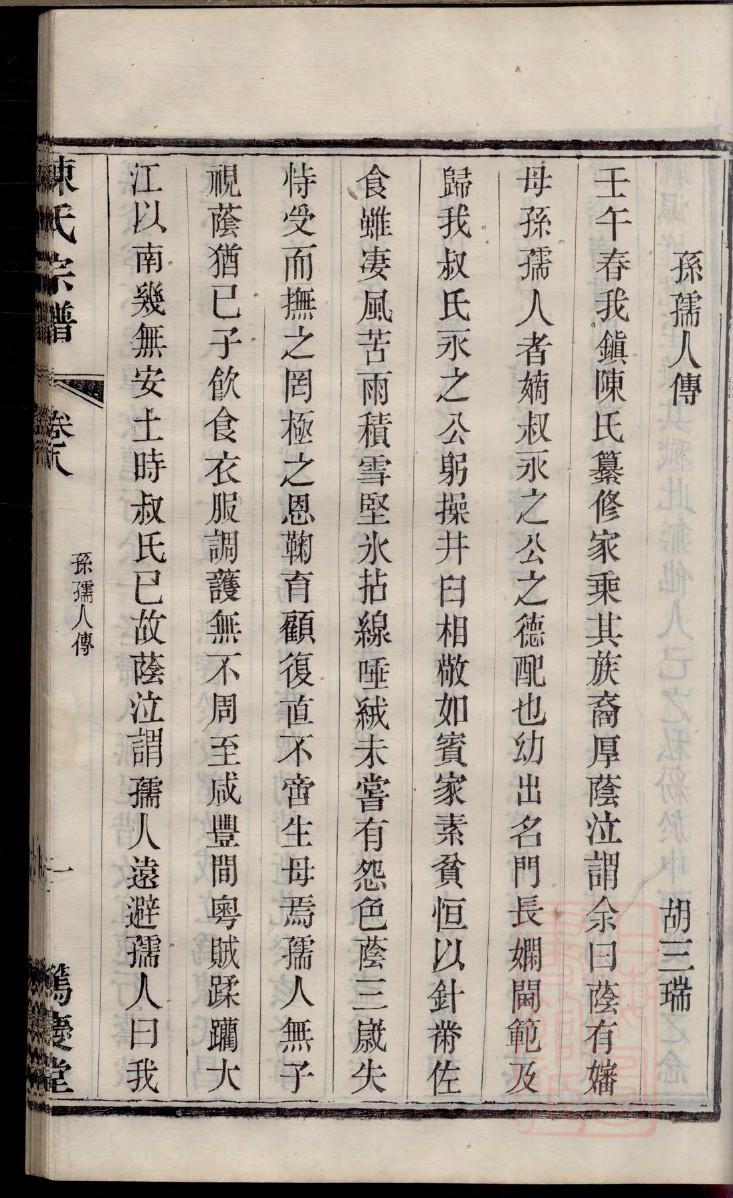 孫孺人傳 胡三瑞
壬午春我鎭陳氏纂修家乘其族裔厚蔭泣謂余曰蔭有嬸
母孫孺人者嫡叔永之公之德配也幼出名門長嫻閫範及
歸我叔氏永之公躬操井臼相敬如賓家素貧恒以針黹佐
食雖凄風苦雨積雪堅氷拈線唾絨未嘗有怨色蔭三歲失
恃受而撫之罔極之恩鞠育顧復直不啻生母焉孺人無子
視蔭猶己子飲食衣服調護無不周至咸豐間粵賊蹂躪大
江以南幾無安土時叔氏已故蔭泣謂孺人遠避孺人曰我
陳氏宗譜 卷八 孫孺人傳 一 篤慶堂